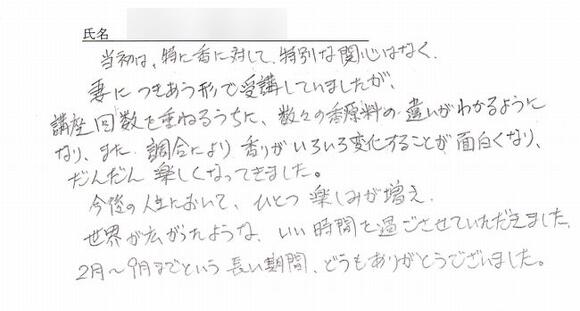 氏名
当初は、特に香に対して、特別な関心はなく、
妻につきあう形で受講していましたが、
講座回数を重ねるうちに、数々の香原料の違いがわかるように
なり、また調合により香りがいろいろ変化することが面白くなり、
だんだん楽しくなってきました。
今後の人生において、ひとつ楽しみが増え、
世界が広がたような、いい時間を過ごさせていただきました。
2月～9月までという長い期間、どうもありがとうございました。